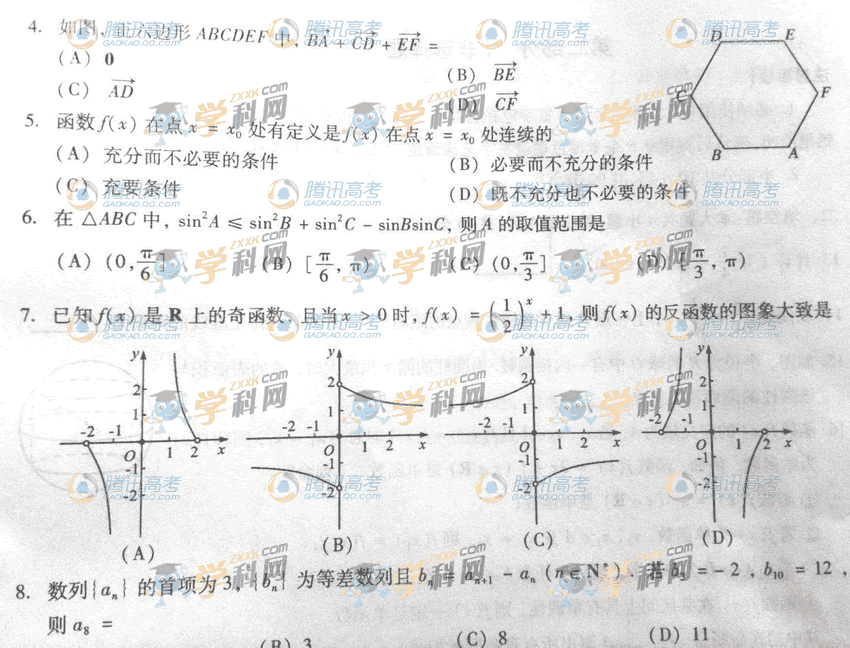 4. 如图, 正六边形 ABCDEF 中, BA + CD + EF =
(A) 0
(B) BE
(C) AD
(D) CF
D E
C F
B A
5. 函数 f(x) 在点 x = x₀ 处有定义是 f(x) 在点 x = x₀ 处连续的
(A) 充分而不必要的条件
(B) 必要而不充分的条件
(C) 充要条件
(D) 既不充分也不必要的条件
6. 在 △ABC 中, sin²A ≤ sin²B + sin²C - sinBsinC, 则 A 的取值范围是
(A) (0, π/6]
(B) [π/6, π)
(C) (0, π/3]
(D) [π/3, π)
7. 已知 f(x) 是 R 上的奇函数, 且当 x > 0 时, f(x) = (1/2)ˣ + 1, 则 f(x) 的反函数的图象大致是
y 2 1 -2 -1 O 1 2 x -1 -2
y 2 1 -2 -1 O 1 2 x -1 -2
y 2 1 -2 -1 O 1 2 x -1 -2
y 2 1 -2 -1 O 1 2 x -1 -2
(A)
(B)
(C)
(D)
8. 数列{aₙ} 的首项为 3, {bₙ} 为等差数列且 bₙ = aₙ₊₁ - aₙ (n∈N*), 若 b₃ = -2, b₁₀ = 12,
则 a₈ =
(B) 3
(C) 8
(D) 11
腾讯高考
GAOKAO.QQ.COM
学科网
ZXXK.COM